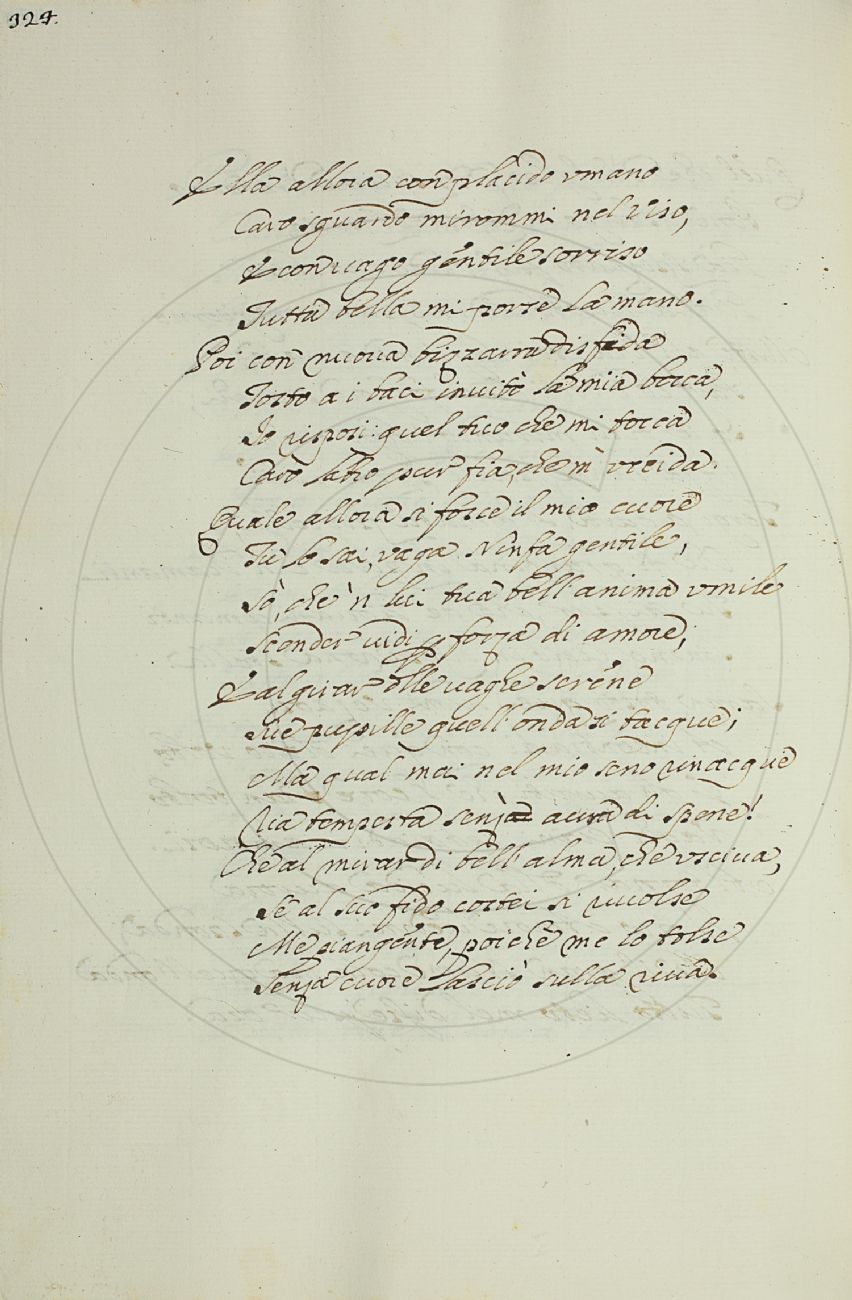 324.
Ella allora con placido vmano
Caro sguardo mirommi nel viso,
E con uago gentile sorriso
Tutta bella mi porse la mano.
Poi con nuoua bizzarra disfida
Tosto a i baci inuitò la mia bocca,
Io risposi: quel tuo che mi tocca
Caro labro pur fia, che m' vccida.
Quale allora si fosse il mio cuore
Tu lo sai, vaga Ninfa gentile,
Sò, che 'n lei tua bell' anima vmile
Scender uidi p forza di amore;
E al girar delle uaghe serene
Sue pupille quell' onda si tacque;
Ma qual mai nel mio seno rinacque
Ria tempesta senza aura di spene!
Che al mirar di bell' alma, che vsciua,
Se al suo fido costei si riuolse
Me piangente, poichè me lo tolse
Senza cuore lasciò sulla riua.